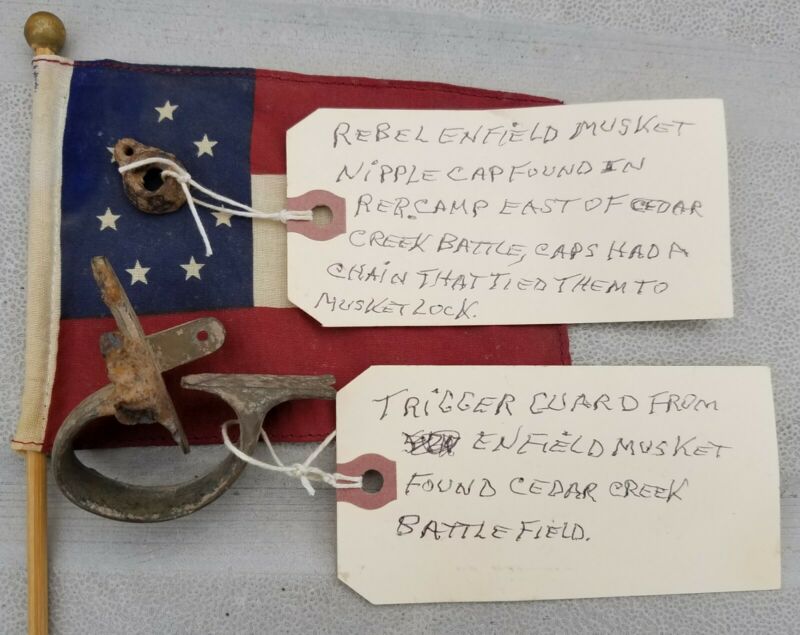 REBEL ENFIELD MUSKET
NIPPLE CAP FOUND IN
REB. CAMP EAST OF CEDAR
CREEK BATTLE, CAPS HAD A
CHAIN THAT TIED THEM TO
MUSKET LOCK.
TRIGGER GUARD FROM
ENFIELD MUSKET
FOUND CEDAR CREEK
BATTLE FIELD.